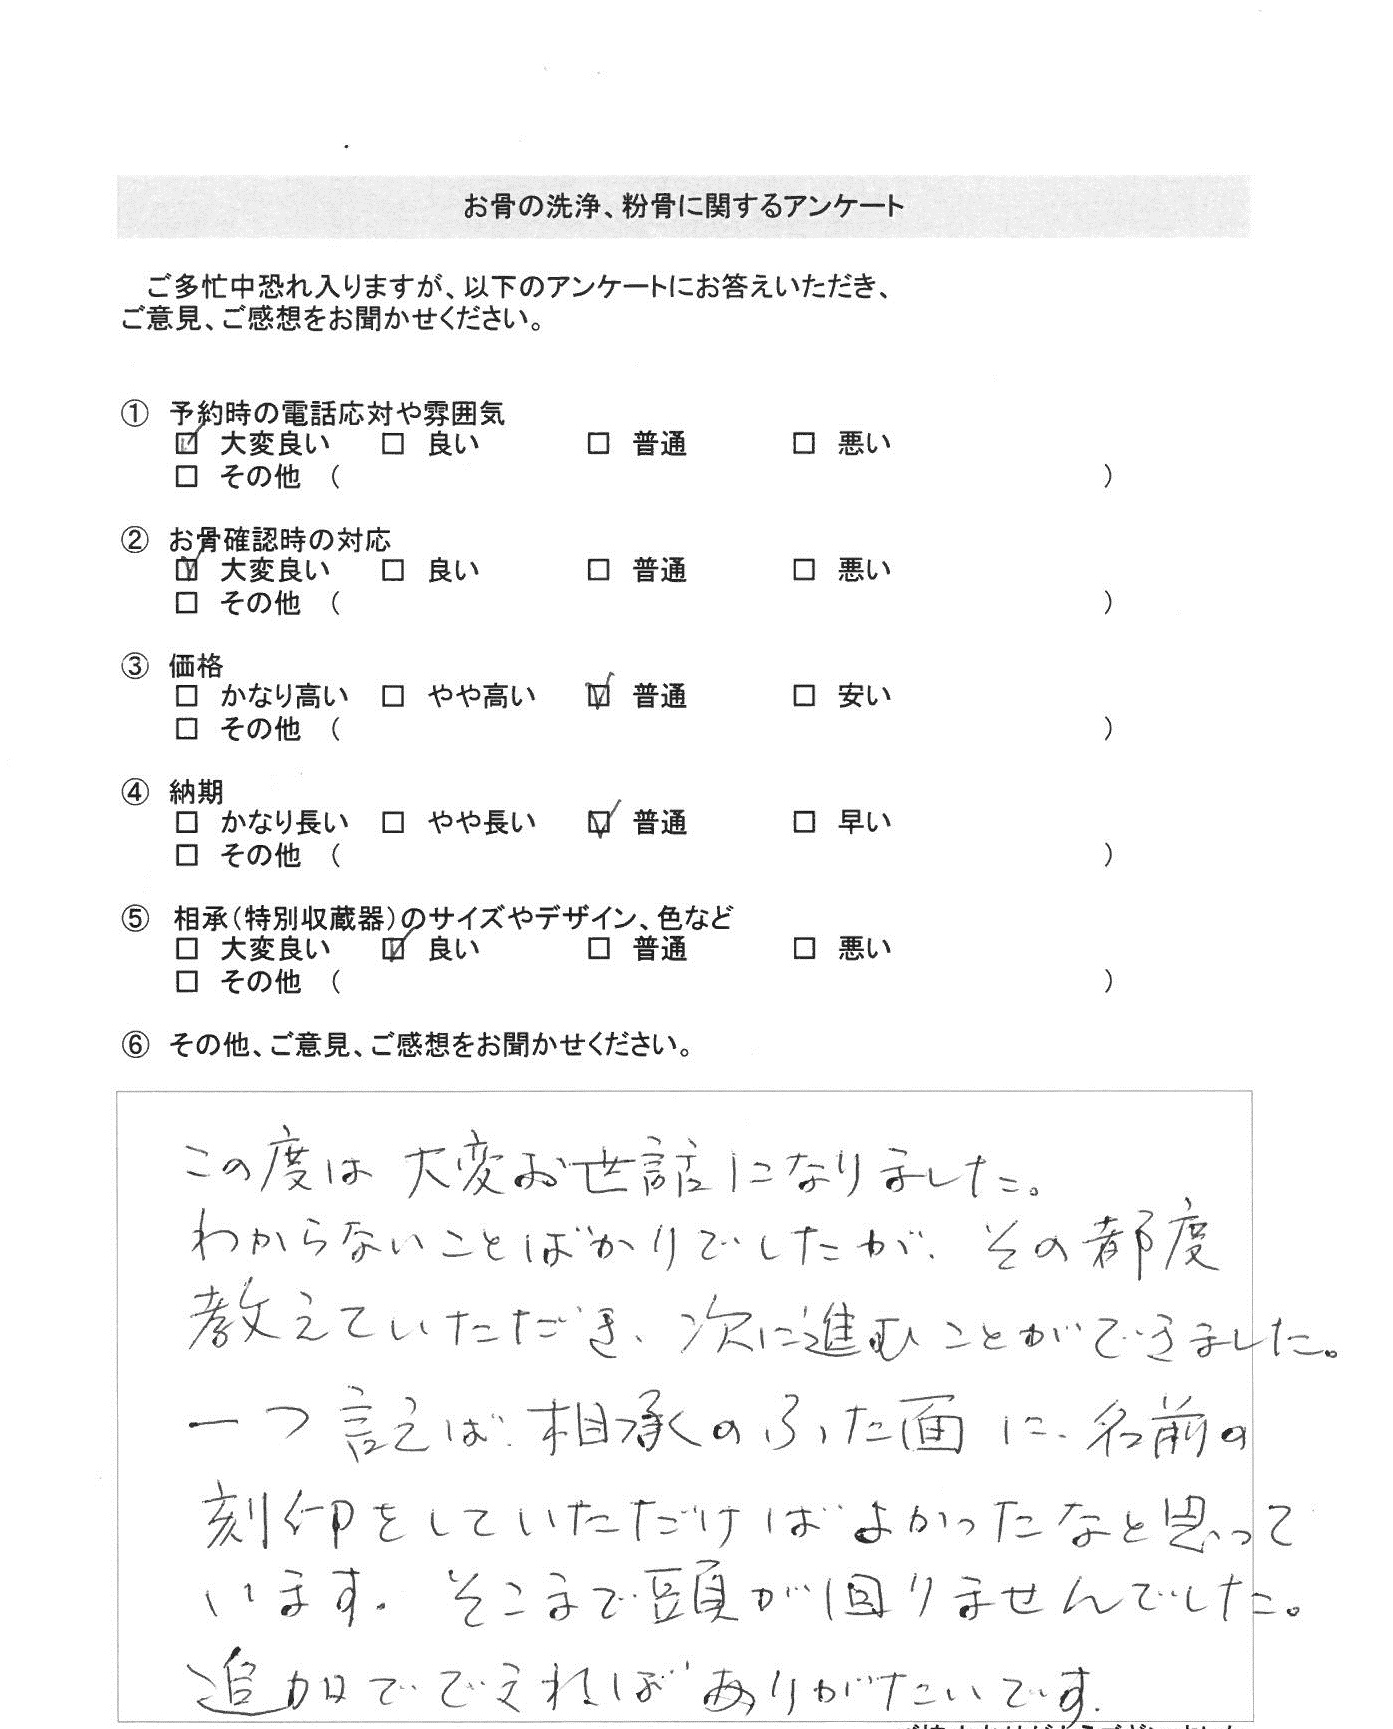 お骨の洗浄、粉骨に関するアンケート
ご多忙中恐れ入りますが、以下のアンケートにお答えいただき、
ご意見、ご感想をお聞かせください。
① 予約時の電話応対や雰囲気
☑ 大変良い □ 良い □ 普通 □ 悪い
□ その他 （ ）
② お骨確認時の対応
☑ 大変良い □ 良い □ 普通 □ 悪い
□ その他 （ ）
③ 価格
□ かなり高い □ やや高い ☑ 普通 □ 安い
□ その他 （ ）
④ 納期
□ かなり長い □ やや長い ☑ 普通 □ 早い
□ その他 （ ）
⑤ 相承（特別収蔵器）のサイズやデザイン、色など
□ 大変良い ☑ 良い □ 普通 □ 悪い
□ その他 （ ）
⑥ その他、ご意見、ご感想をお聞かせください。
この度は 大変お世話になりました。
わからないことばかりでしたが、その都度
教えていただき、次に進むことができました。
一つ言えば、相承のふた面に、名前の
刻印をしていただけばよかったなと思って
います。そこまで頭が回りませんでした。
追加でできればありがたいです。